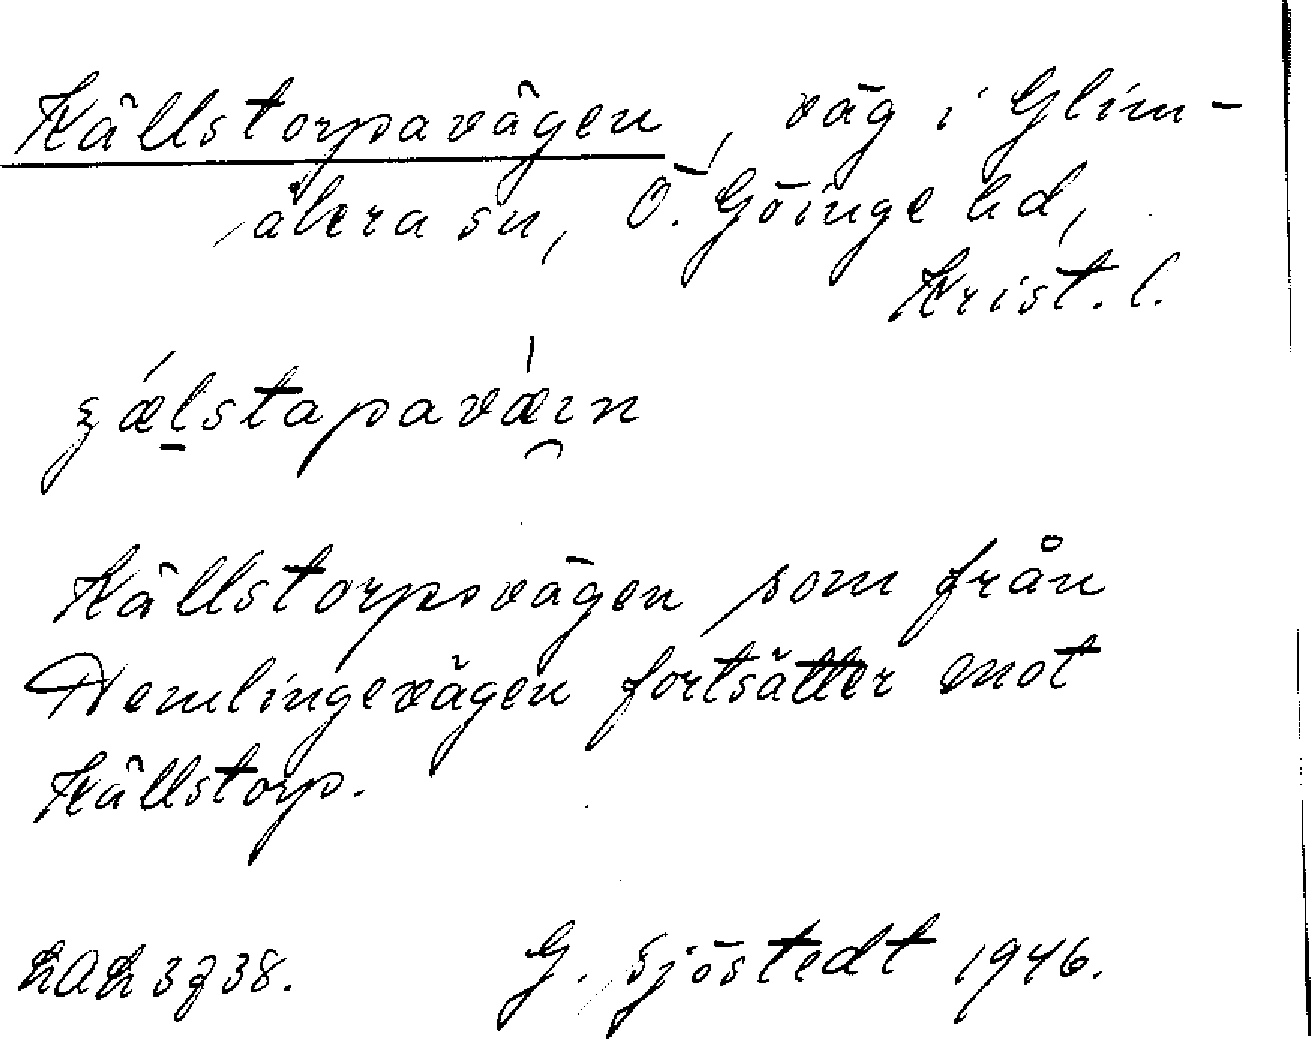 Källstorpavägen, väg i Glim-
åkra sn, Ö. Göinge hd,
Krist. l.
ʒǽlstapavǽın
Källstorpsvägen som från
Hemlingevägen fortsätter mot
Källstorp.
LAL 3738. G. Sjöstedt 1946.